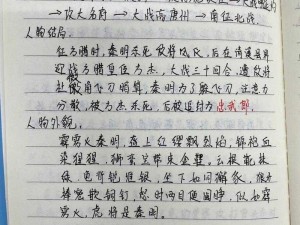 →攻大名府→大战高唐州→南征北战
人物结局:
征方腊时,秦明杀死
迎战方腊皇侄方杰,大战三十回合,遭敌将
杜微飞刀暗算,秦明为了飞刀,注意力
分散,被方杰杀死,百被追封为忠武郎
人物外貌:
霹雳火秦明,盔上红缨飘烈焰,锦袍血
染猩猩,狮蛮宝带束金鞓。云根靴抹
绿,龟背铠堆银。坐下如同獬豸,狼牙
棒密嵌铜钉,怒时两目便圆睁,性如霹
雳火,虎将是秦明。